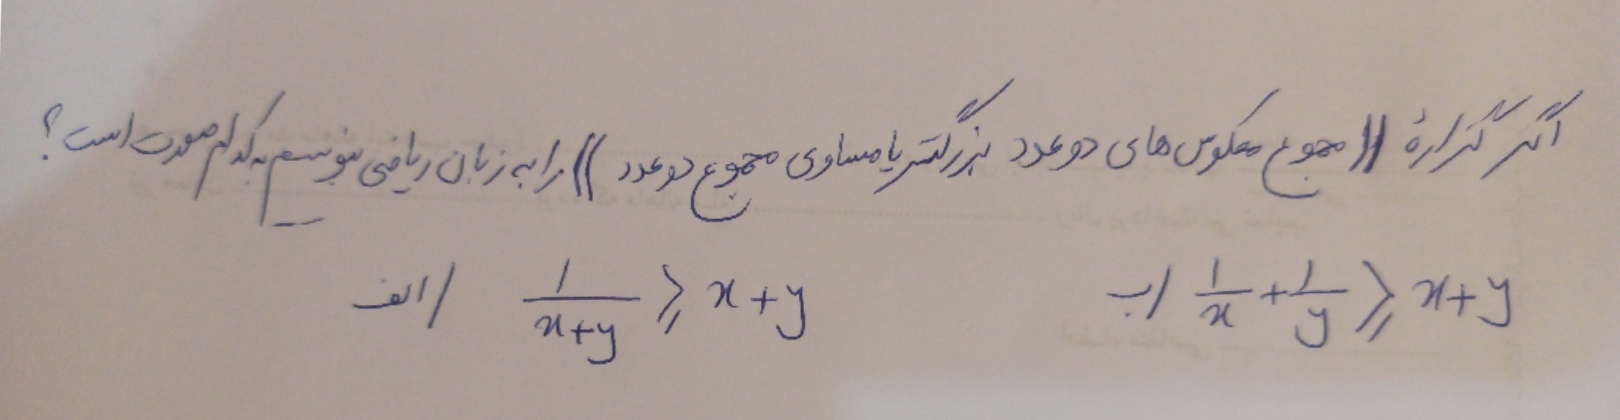 اگر گزارهٔ «مجموع معکوس های دو عدد بزرگتر یا مساوی مجموع دو عدد» را به زبان ریاضی بنویسیم به کدام صورت است؟
الف / 1/(x+y) ⩾ x+y
ب / 1/x + 1/y ⩾ x+y